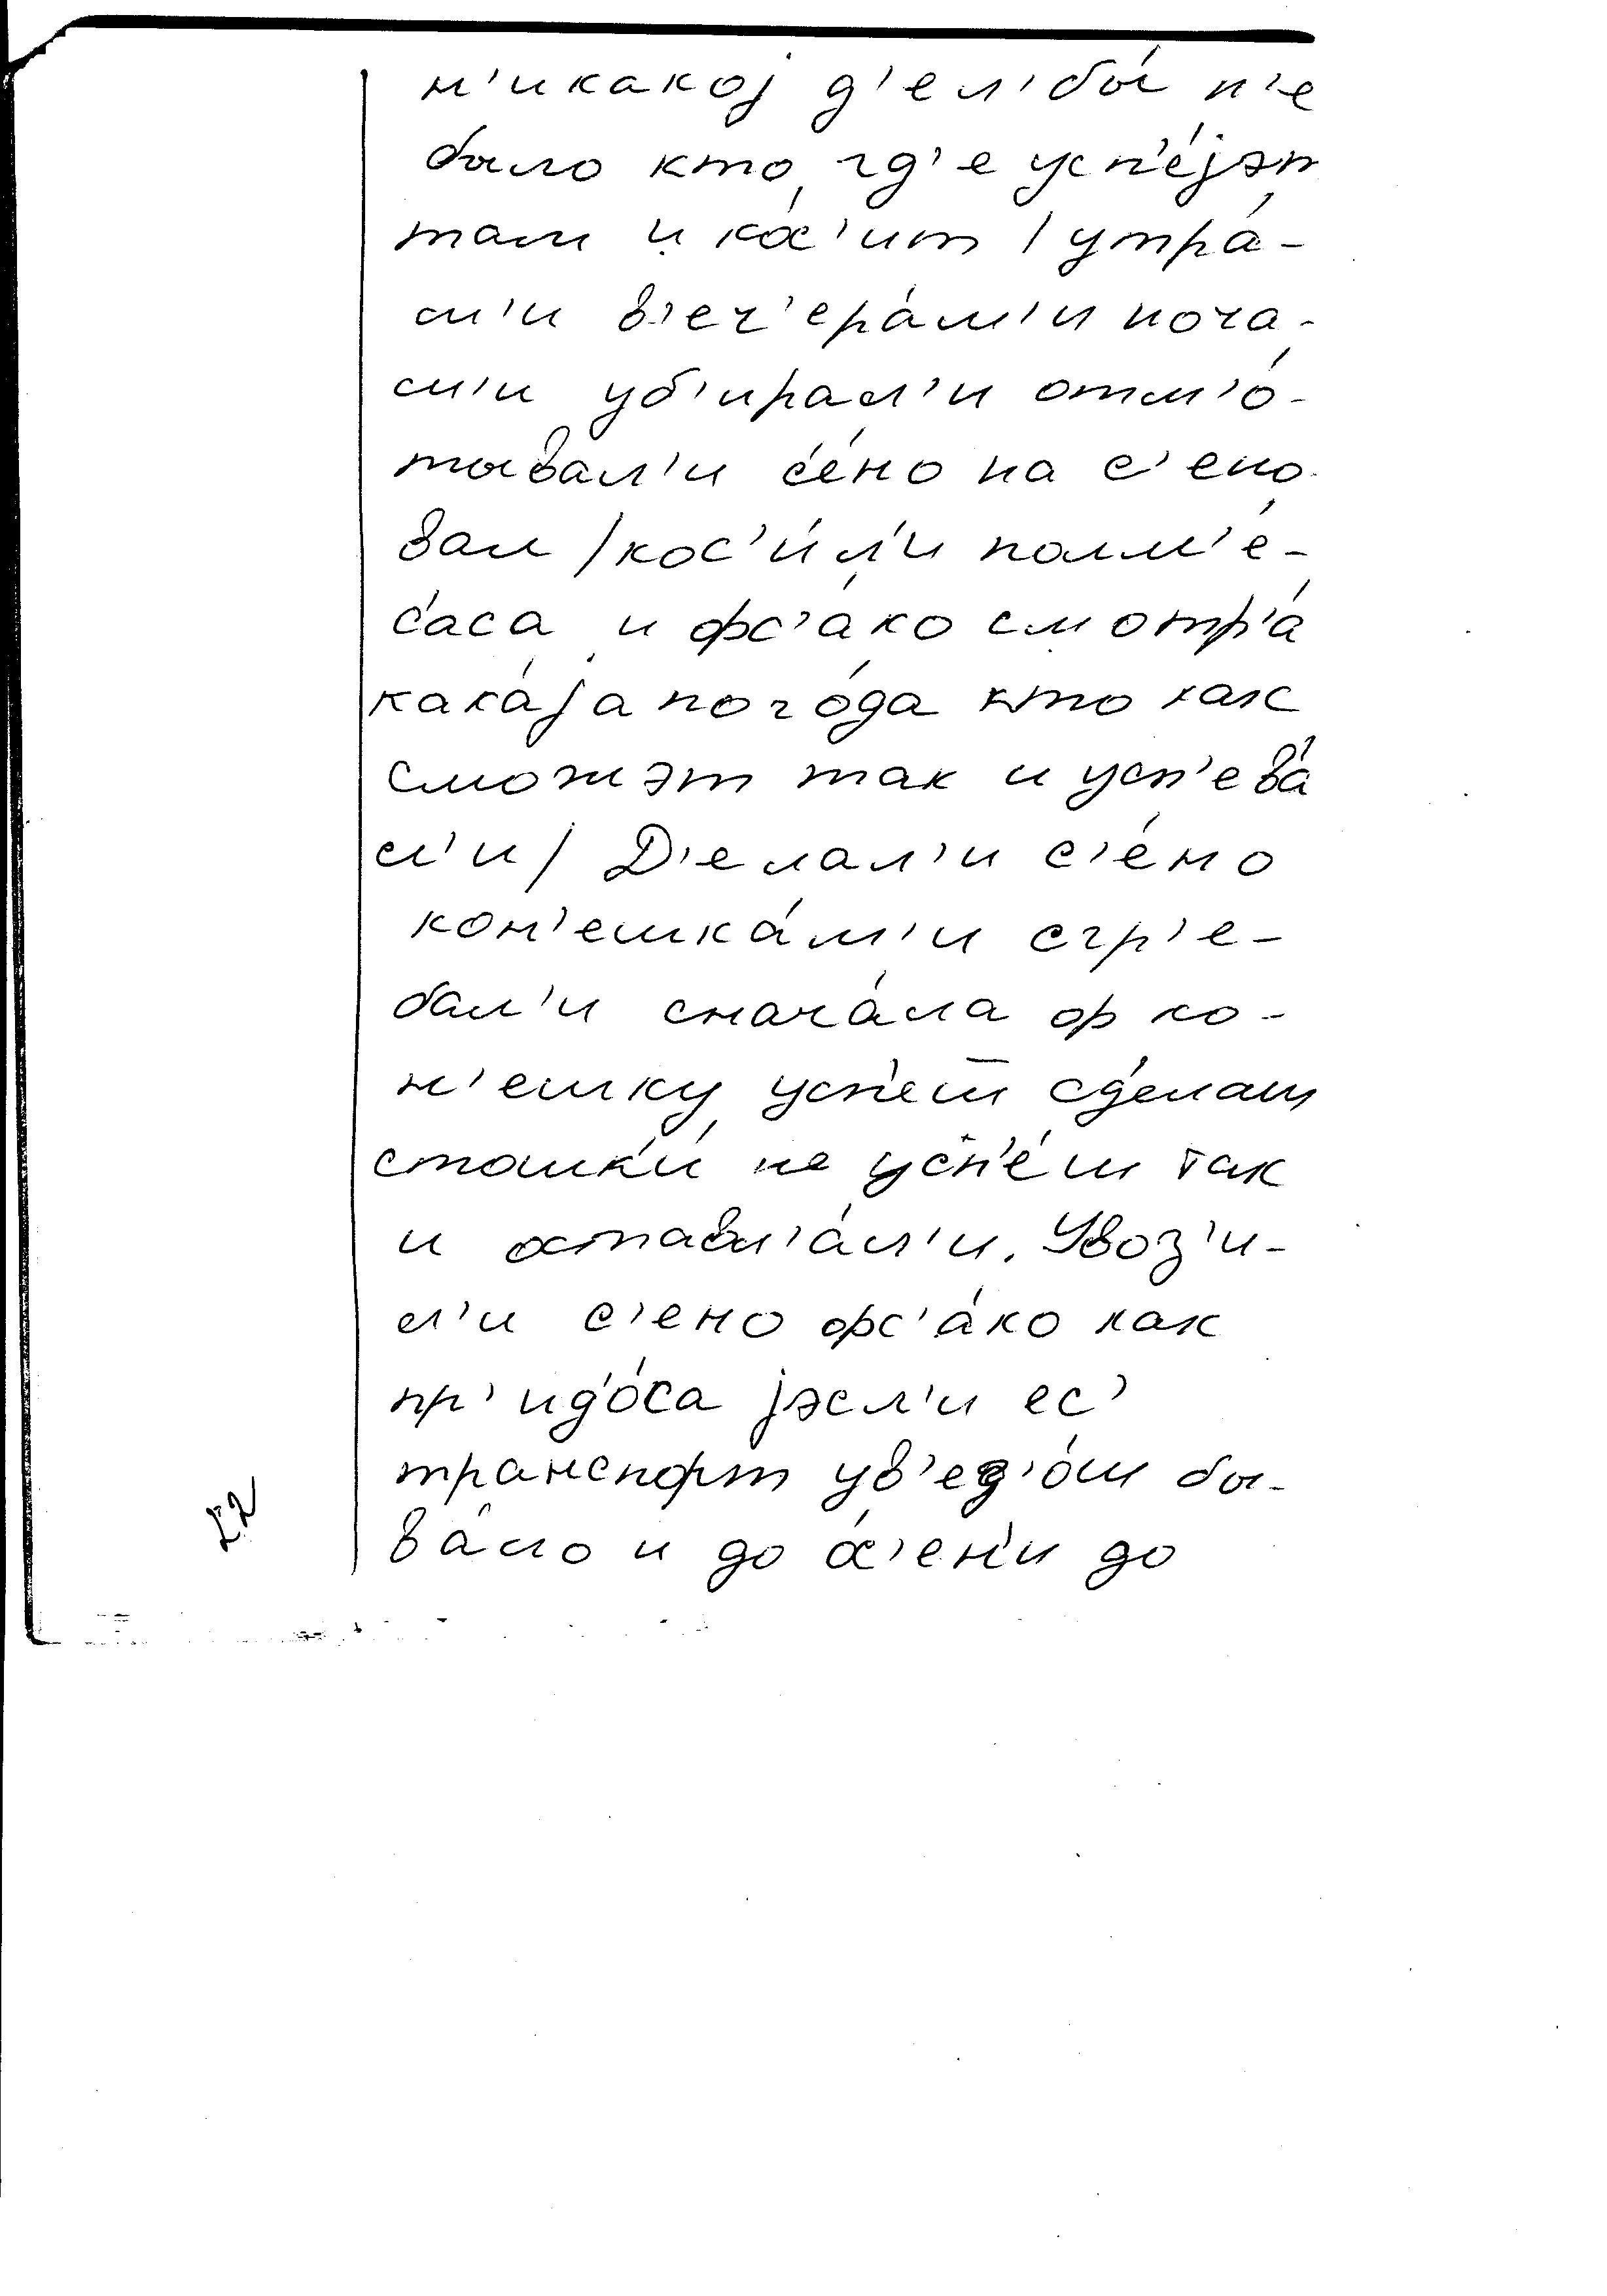 н'икакој д'ел'бы́ н'е
было кто гд'е усп'е́јэт
там и ко́с'ит / утра́-
м'и в'еч'ера́м'и ноча-
м'и уб'ирал'и отм'о́-
тывал'и с'е́но на с'ено
вал / кос'и́л'и полм'е́-
с'аса и фс'а́ко смотр'а́
кака́ја пого́да кто как
сможэт так и усп'ева́
л'и / Д'елал'и с'е́но
кон'ешка́м'и сгр'е-
бал'и снача́ла ф ко-
н'ешку усп'еш сд'елаш
стошк'и́ не усп'е́ш так
и оставл'а́л'и. Увоз'и-
л'и с'ено фс'а́ко как
пр'ид'о́са јэсл'и ес'
транспорт ув'ед'о́ш бы-
ва́ло и до о́с'ен'и до
22